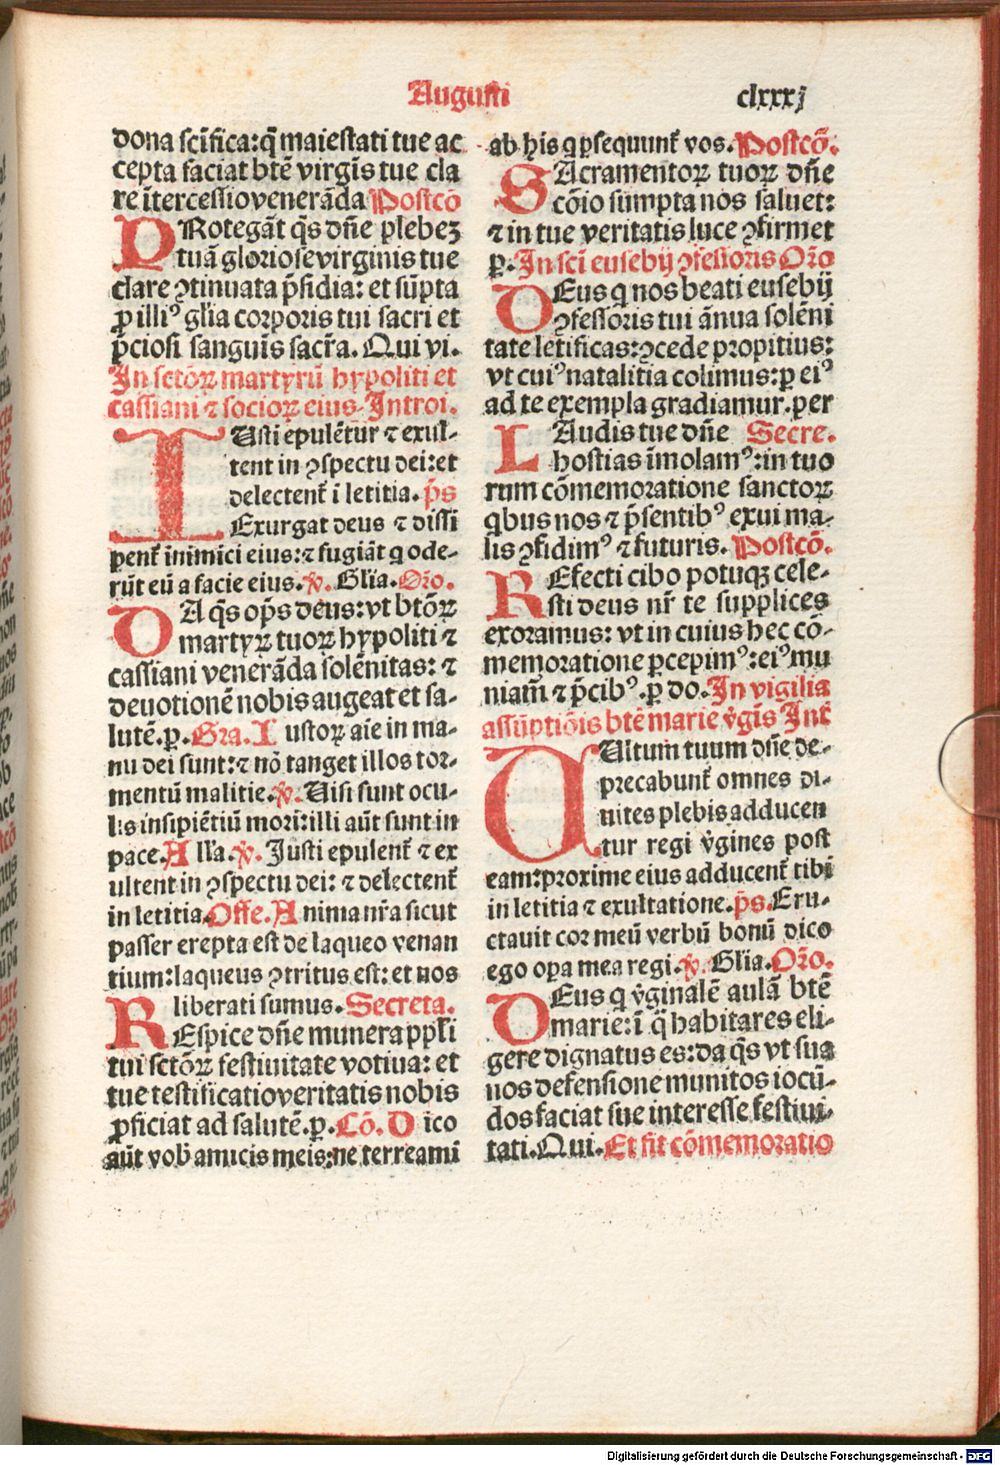 Augusti
clxxxj
dona scīfica: q̄ maiestati tue ac
cepta faciat btē virgīs tue cla
re ītercessio venerāda Postcō
PRotegāt q̄s dn̄e plebeꝫ
tuā gloriose virginis tue
clare ꝯtinuata p̄sidia: et sūpta
ꝓ illiꝰ gl̄ia corporis tui sacri et
p̄ciosi sanguīs sacr̄a. Qui vi.
In sctōꝝ martyrū hypoliti et
cassiani ⁊ socioꝝ eius. Introi.
IUsti epulētur ⁊ exul-
tent in ꝯspectu dei: et
delectent̄ ī letitia. p̄s
Exurgat deus ⁊ dissi
pent̄ inimici eius: ⁊ fugiāt q ode-
rūt eū a facie eius. ℣. Gl̄ia. Or̄o.
DA q̄s op̄s deus: vt btōꝝ
martyꝝ tuoꝝ hypoliti ⁊
cassiani venerāda solēnitas: ⁊
deuotionē nobis augeat et sa-
lutē. p̄. Gra. Iustoꝝ aīe in ma-
nu dei sunt: ⁊ nō tanget illos tor-
mentū malitie. ℣. Uisi sunt ocu-
lis insipiētiū mori: illi aūt sunt in
pace. All'a. ℣. Justi epulent̄ ⁊ ex
ultent in ꝯspectu dei: ⁊ delectent̄
in letitia. Offe. Anima nr̄a sicut
passer erepta est de laqueo venan
tium: laqueus ꝯtritus est: et nos
liberati sumus. Secreta.
REspice dn̄e munera ppl̄i
tui sctōꝝ festiuitate votiua: et
tue testificatio veritatis nobis
ꝓficiat ad salutē. p̄. Cō. Dico
aūt vob̄ amicis meis: ne terreamī
ab his q ꝑsequunt̄ vos. Postcō.
SAcramentoꝝ tuoꝝ dn̄e
cōio sumpta nos saluet:
⁊ in tue veritatis luce ꝯfirmet
p̄. In scī eusebij ꝯfessoris Or̄o
DEus q nos beati eusebij
ꝯfessoris tui ānua solēni
tate letificas: ꝯcede propitius:
vt cuiꝰ natalitia colimus: ꝑ eiꝰ
ad te exempla gradiamur. per
LAudis tue dn̄e Secre.
hostias īmolamꝰ: in tuo
rum cōmemoratione sanctoꝝ
qbus nos ⁊ p̄sentibꝰ exui ma-
lis ꝯfidimꝰ ⁊ futuris. Postcō.
REfecti cibo potuqꝫ cele-
sti deus nr̄ te supplices
exoramus: vt in cuius hec cō-
memoratione ꝑcepimꝰ: eiꝰ mu
niam̄ ⁊ p̄cibꝰ. p̄ do. In vigilia
assūptiōis btē marie v̄gīs Int̄
UUltum tuum dn̄e de-
precabunt̄ omnes di-
uites plebis adducen
tur regi v̄gines post
eam: proxime eius adducent̄ tibi
in letitia ⁊ exultatione. p̄s. Eru-
ctauit cor meū verbū bonū dico
ego opa mea regi. ℣. Gl̄ia. Or̄o.
DEus q v̄ginalē aulā btē
marie: ī q̄ habitares eli-
gere dignatus es: da q̄s vt sua
nos defensione munitos iocū-
dos faciat sue interesse festiui-
tati. Qui. Et fit cōmemoratio
Digitalisierung gefördert durch die Deutsche Forschungsgemeinschaft - DFG